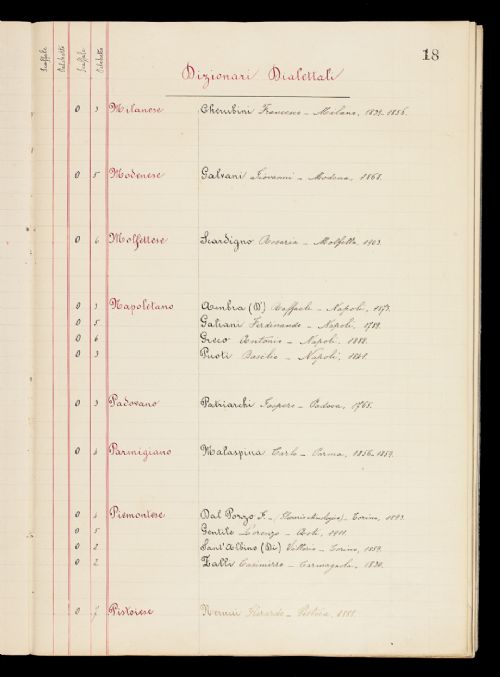 18
Scaffale Palchetto Scaffale Palchetto
Dizionari Dialettali
0 3 Milanese Cherubini Francesco - Milano, 1839-1856.
0 5 Modenese Galvani Giovanni - Modena, 1868.
0 6 Molfettese Scardigno Rosaria - Molfetta, 1903.
0 3 Napoletano Ambra (D') Raffaele - Napoli, 1873.
0 5 Galiani Ferdinando - Napoli, 1789.
0 6 Greco Antonio - Napoli, 1888.
0 3 Puoti Basilio - Napoli, 1841.
0 3 Padovano Patriarchi Gaspero - Padova, 1765.
0 Parmigiano Malaspina Carlo - Parma, 1856-1859.
0 Piemontese Dal Pozzo F. - Torino, 1893.
0 5 Gentile Lorenzo - Asti, 1911.
0 2 Sant'Albino (Di) Vittorio - Torino, 1859.
0 2 Zalli Casimiro - Carmagnola, 1830.
0 7 Pistoiese Nerucci Gherardo - Pistoia,